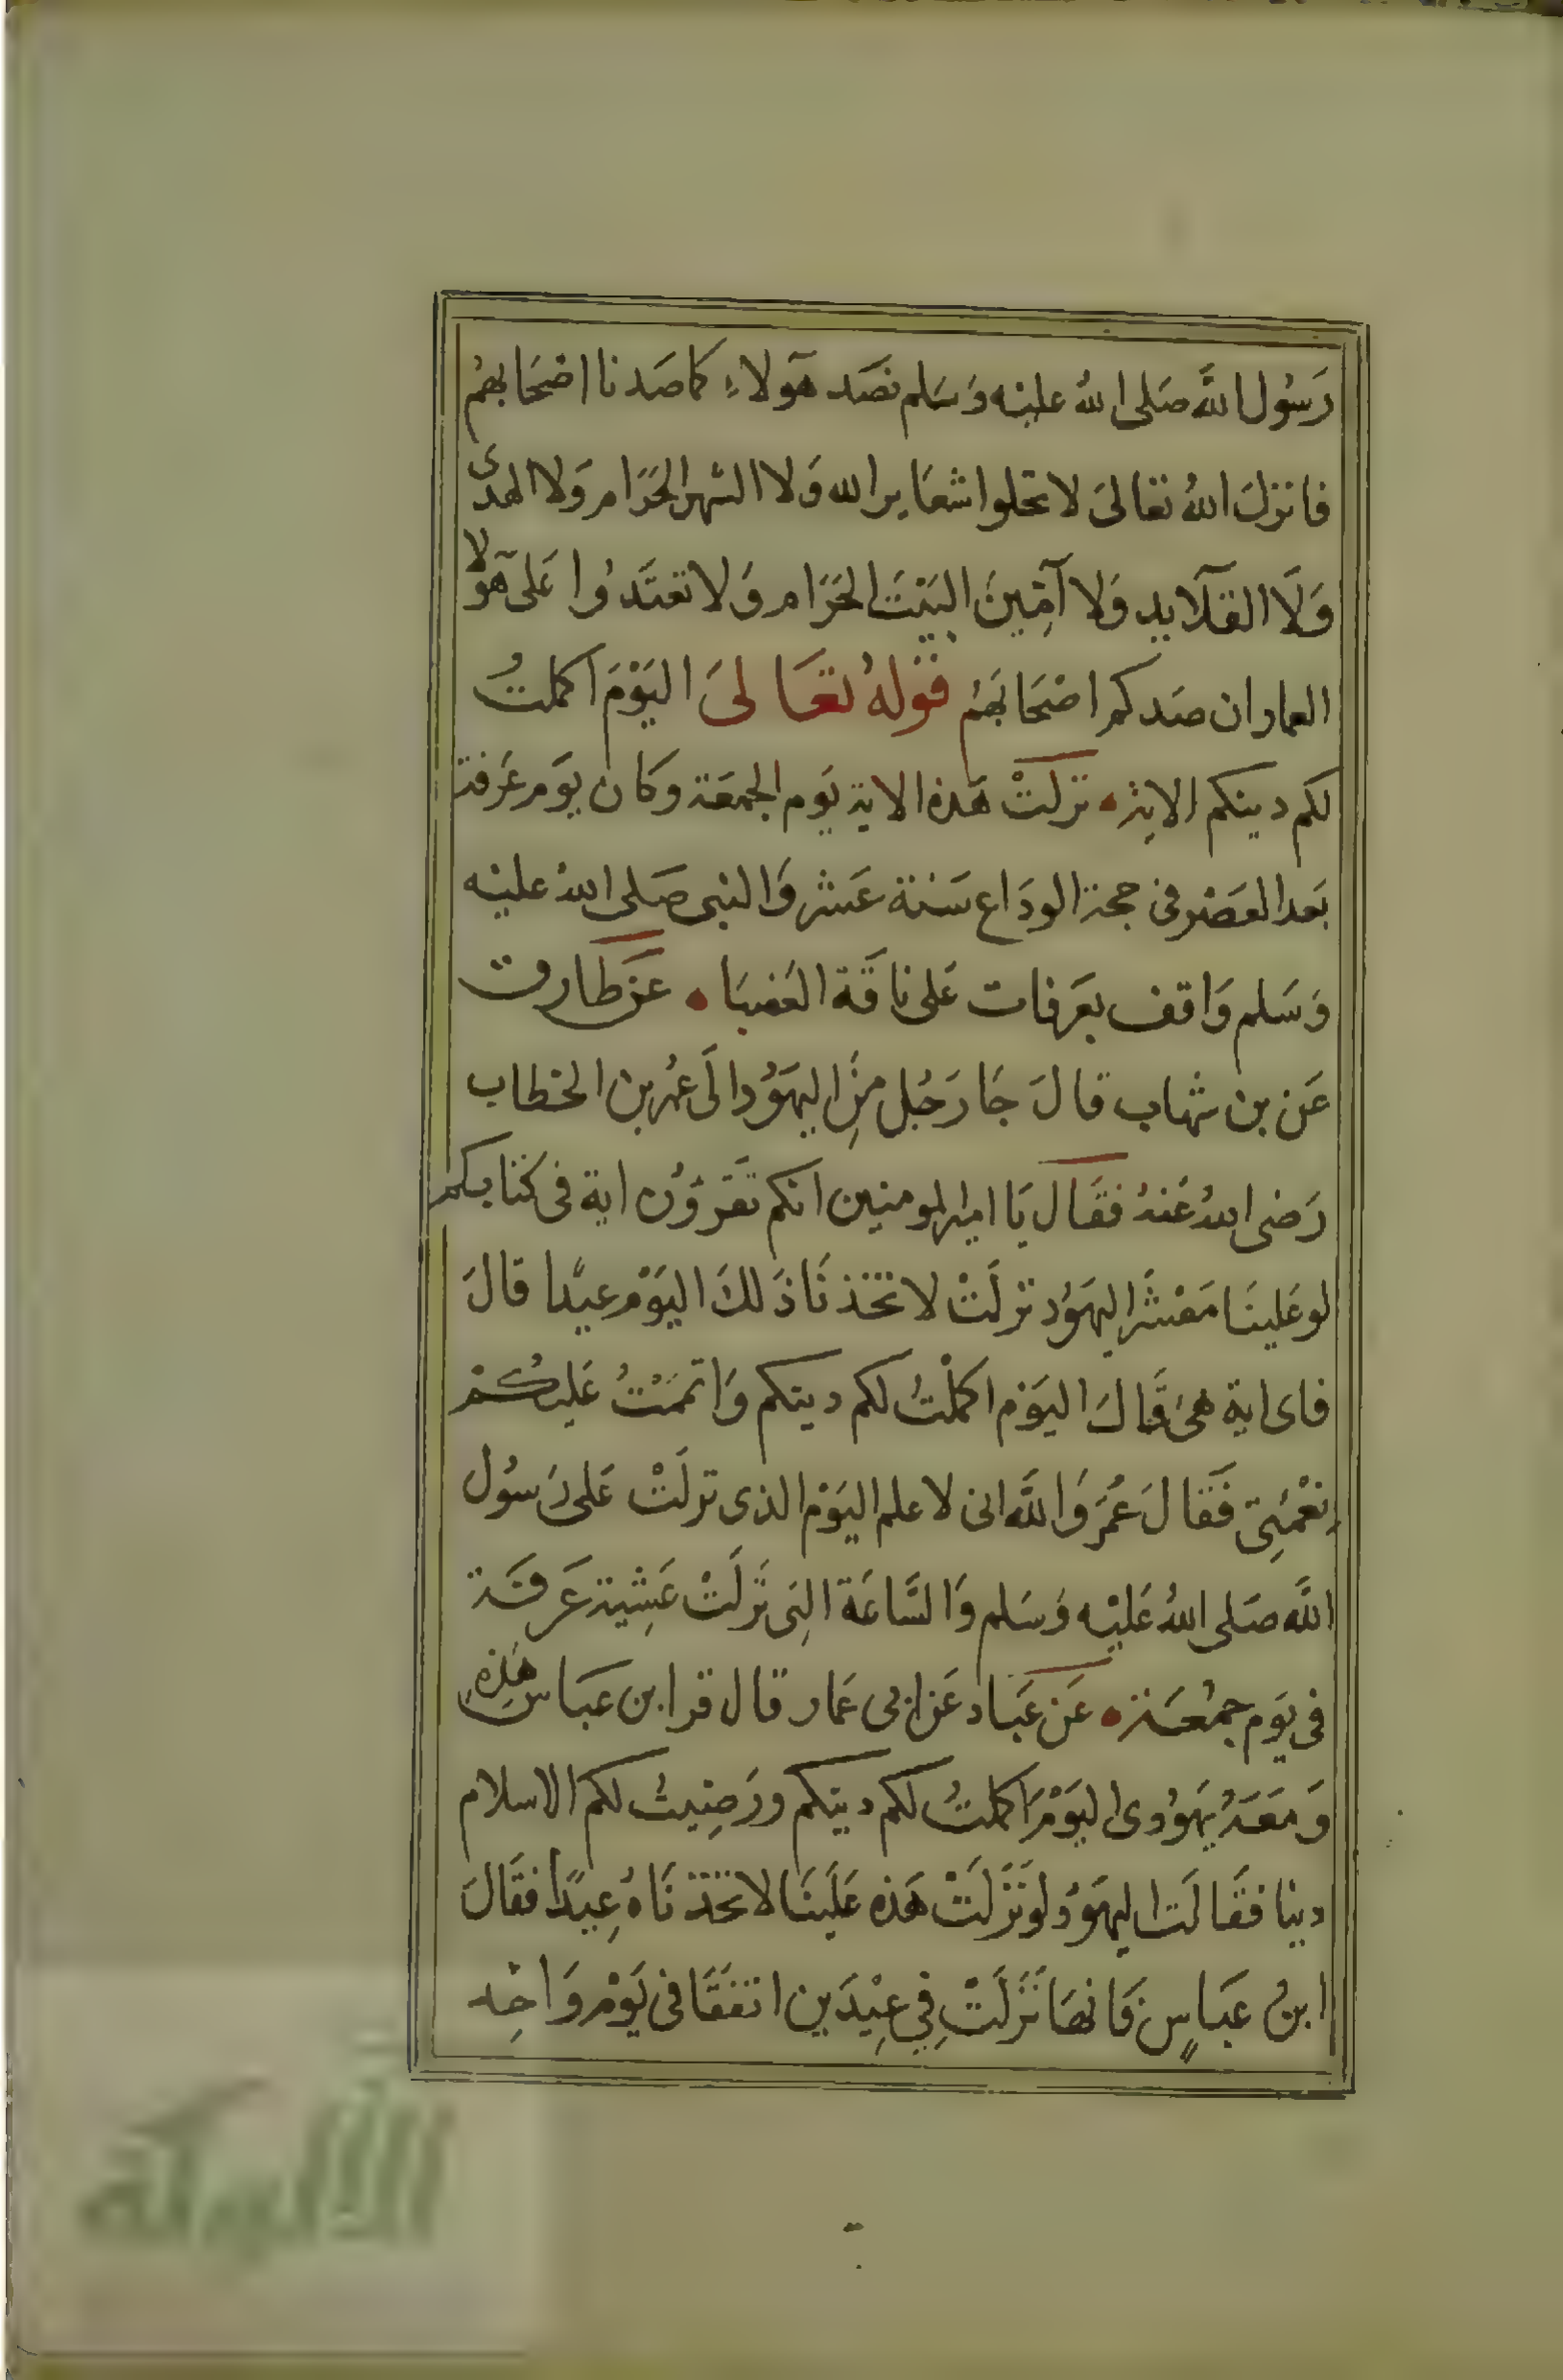 رَسُول اللَّه صَلى اللهُ عليْه وَسَلم نصَد هَؤلاءِ كما صَدنا اصْحَابهمْ
فانزلَ اللهُ تعَالىَ لا تحلوا شعَاير الله وَلا الشهر الحَرَام وَلا الهدى
وَلَا القلَايد وَلا آمِّينَ البَيْتَ الحَرَام وَلا تعتَدُوا عَلى هَولا
العمار ان صَدكم اصْحَابَهُمْ قوْلهُ تعَالىَ اليَوْمَ اكملتُ
لكم دينكم الاية نزلَتْ هَذه الاية يَوم الجمعَة وَكان يَوم عَرفة
بَعد العَصْر فى حجة الودَاع سَنة عَشر وَالنبى صَلى اللهُ عليْه
وَسَلم وَاقف بعَرفات عَلى ناقَة العَضبَا عَن طارق
عَن بن شهاب قالَ جَا رَجُل مِنَ اليهَوُد الَى عُمر بن الخطاب
رَضى اللهُ عَنهُ فقَال يَا امير المومنين انكم تَقرؤن اية فى كتابكم
لو عَلينَا مَعْشَر اليهَوُد نزلَتْ لاتخذنَا ذَلكَ اليَوْم عيدًا قالَ
فاى اية هىَ قَالَ اليَوْم اكملْتُ لكم دينكم وَاتممْتُ عَليكُمْ
نِعْمَتِى فَقالَ عُمَر وَاللَّه انى لاعلم اليَوْم الذى نزلَتْ عَلى رَسُول
اللَّه صَلى اللهُ عَليْه وَسَلم وَالسَّاعَة التِى نَزلَتْ عَشِية عَرفَة
فى يَوم جمُعَة عَن عَبَاد عَن ابى عَمار قال قرا ابن عبَاس هَذِهِ
وَمَعَهُ يَهَوُدى اليَوْمَ اكملتُ لكم دينكم ورَضِيتُ لكم الاسلام
دينا فقَالَت اليهَوُد لو نَزَلَتْ هَذه عَلَينَا لاتخذنَاهُ عِيدًا فقَالَ
ابنُ عَبَاسٍ فَانهَا نَزَلَتْ فِي عِيْدَين اتفَقَا فى يَوْم وَاحِد
الألوكة